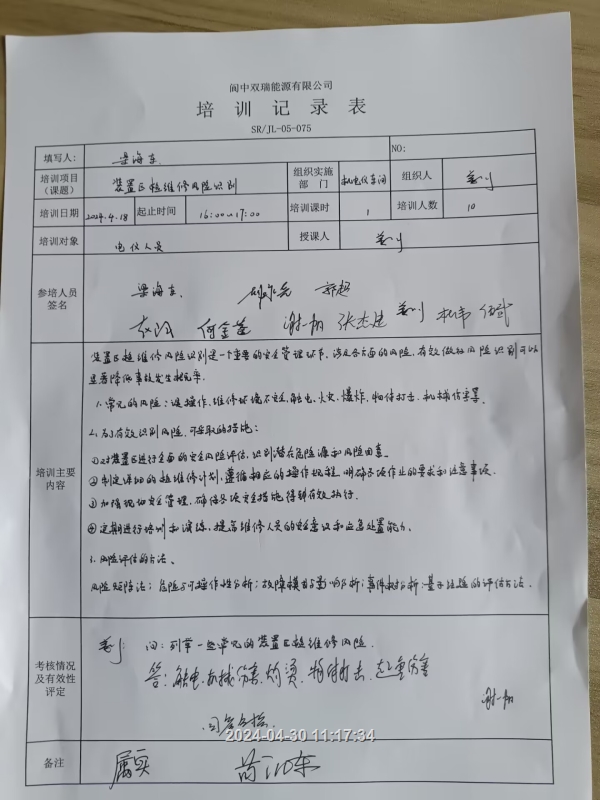 阆中双瑞能源有限公司
培训记录表
SR/JL-05-075
填写人： 梁海东 NO:
培训项目（课题） 装置区检维修风险识别 组织实施部门 机电仪车间 组织人
培训日期 2024.4.18 起止时间 16:00~17:00 培训课时 1 培训人数 10
培训对象 电仪人员 授课人
参培人员签名 梁海东 郭超
何金莲 谢一树 张杰 杜伟 伍武
培训主要内容
装置区检维修风险识别是一个重要的安全管理环节，涉及各方面的风险，有效做好风险识别可以
显著降低事故发生概率。
1.常见的风险：误操作、维修环境不安全、触电、火灾、爆炸、物体打击、机械伤害等
2.为有效识别风险，可采取的措施：
①对装置区进行全面的安全风险评估，识别潜在危险源和风险因素。
②制定详细的检维修计划，遵循相应的操作规程，明确各项作业的要求和注意事项.
③加强现场安全管理，确保各项安全措施得到有效执行.
④定期进行培训和演练，提高维修人员的安全意识和应急处置能力。
3.风险评估的方法、
风险矩阵法；危险与可操作性分析；故障模式与影响分析；事件树分析；基于经验的评估方法.
考核情况及有效性评定
问：列举一些常见的装置区检维修风险.
答：触电.机械伤害.灼烫.物体打击.起重伤害
回答合格.
2024-04-30 11:17:34
备注 属实